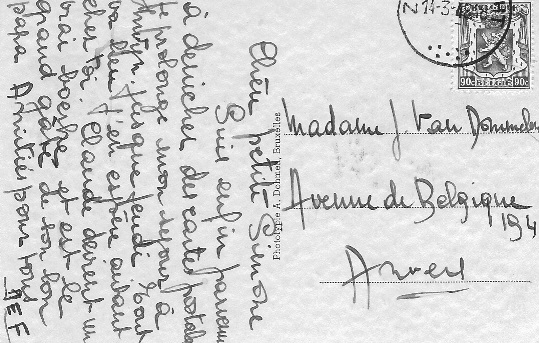 Chère petite Simone
Suis enfin parvenu
à dénicher des cartes postales
Je prolonge mon séjour à
Anvers jusque jeudi. Tout
va bien j'et espère autant
chez toi. Claude devient un
vrai boeske et est le
grand gâté de son bon
papa Amitiés pour tous
REF
Phototypie A. Dohmen, Bruxelles
N 14-3-
90c BELGIE 90c
Madame J Van Dommelen
Avenue de Belgique
194
Anvers